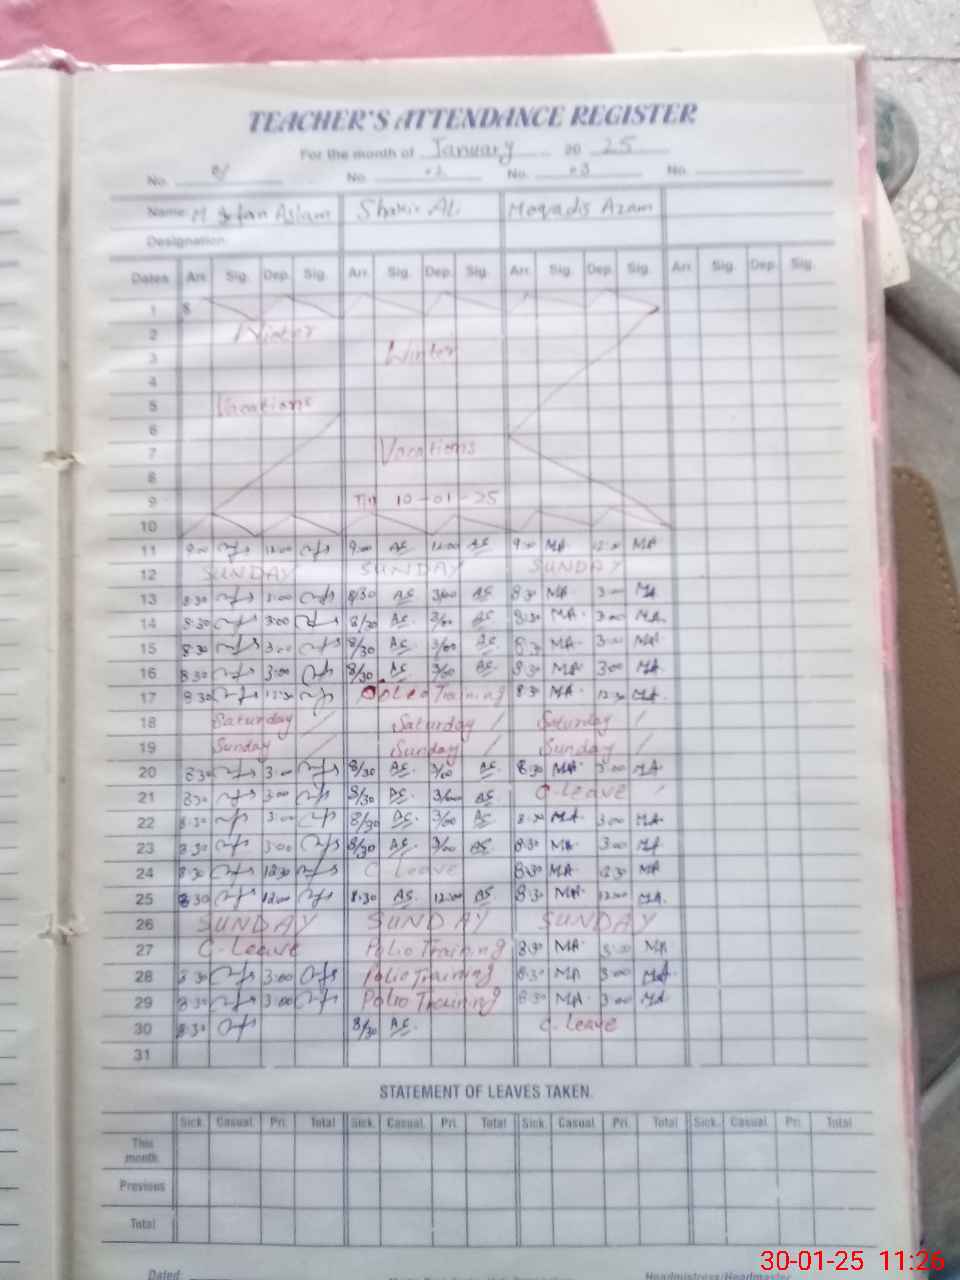 TEACHER'S ATTENDANCE REGISTER
For the month of January 20 25
No. No. No. No.
Name Aslam Shakir Ali Azam
Designation
Dates Arr. Sig. Dep. Sig. Arr. Sig. Dep. Sig. Arr. Sig. Dep. Sig. Arr. Sig. Dep. Sig.
1 8
2 Winter
3 Winter
4
5 Vacations
6
7 Vacations
8
9 Till 10-01-25
10
11 9:00 12:00 9:00 12:00 9:00 MA 12:30 MA
12 SUNDAY SUNDAY SUNDAY
13 8:30 3:00 8/30 3/00 8:30 MA 3:00 MA
14 8:30 3:00 8/30 3/00 8:30 MA 3:00 MA
15 8:30 3:00 8/30 3/00 8:30 MA 3:00 MA
16 8:30 3:00 8/30 3/00 8:30 MA 3:00 MA
17 8:30 12:30 Polio Training 8:30 MA 12:30 MA
18 Saturday Saturday Saturday
19 Sunday Sunday Sunday
20 8:30 3:00 8/30 3/00 8:30 MA 3:00 MA
21 8:30 3:00 8/30 3/00 C-Leave
22 8:30 3:00 8/30 3/00 8:30 MA 3:00 MA
23 8:30 3:00 8/30 3/00 8:30 MA 3:00 MA
24 8:30 12:30 C Leave 8:30 MA 12:30 MA
25 8:30 12:00 8:30 12:00 8:30 MA 12:00 MA
26 SUNDAY SUNDAY SUNDAY
27 C-Leave Polio Training 8:30 MA 3:00 MA
28 8:30 3:00 Polio Training 8:30 MA 3:00 MA
29 8:30 3:00 Polio Training 8:30 MA 3:00 MA
30 8:30 8/30 C-Leave
31
STATEMENT OF LEAVES TAKEN.
Sick. Casual. Pri. Total Sick. Casual. Pri. Total Sick. Casual. Pri. Total Sick. Casual. Pri. Total
This month
Previous
Total
Dated Headmistress/Headmaster
30-01-25 11:26